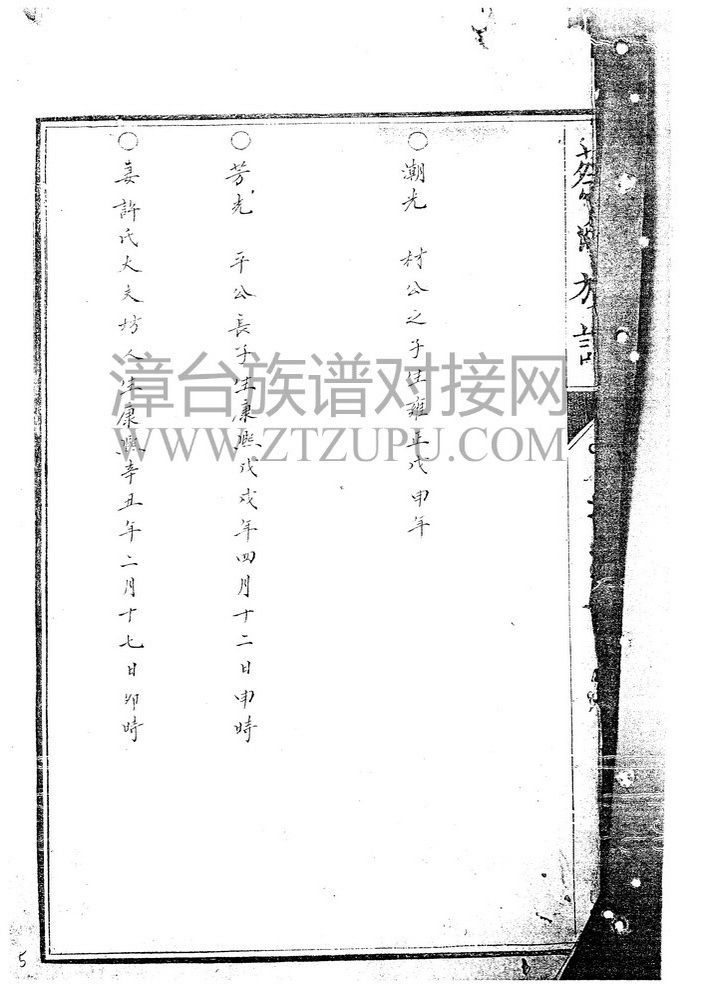 族譜
○潮光 材公之子生雍正戊申年
○芳光 平公長子生康熙戊戌年四月十二日申時
○妻許氏大文坊人生康熙辛丑年二月十七日卯時
漳台族谱对接网
WWW.ZTZUPU.COM
5